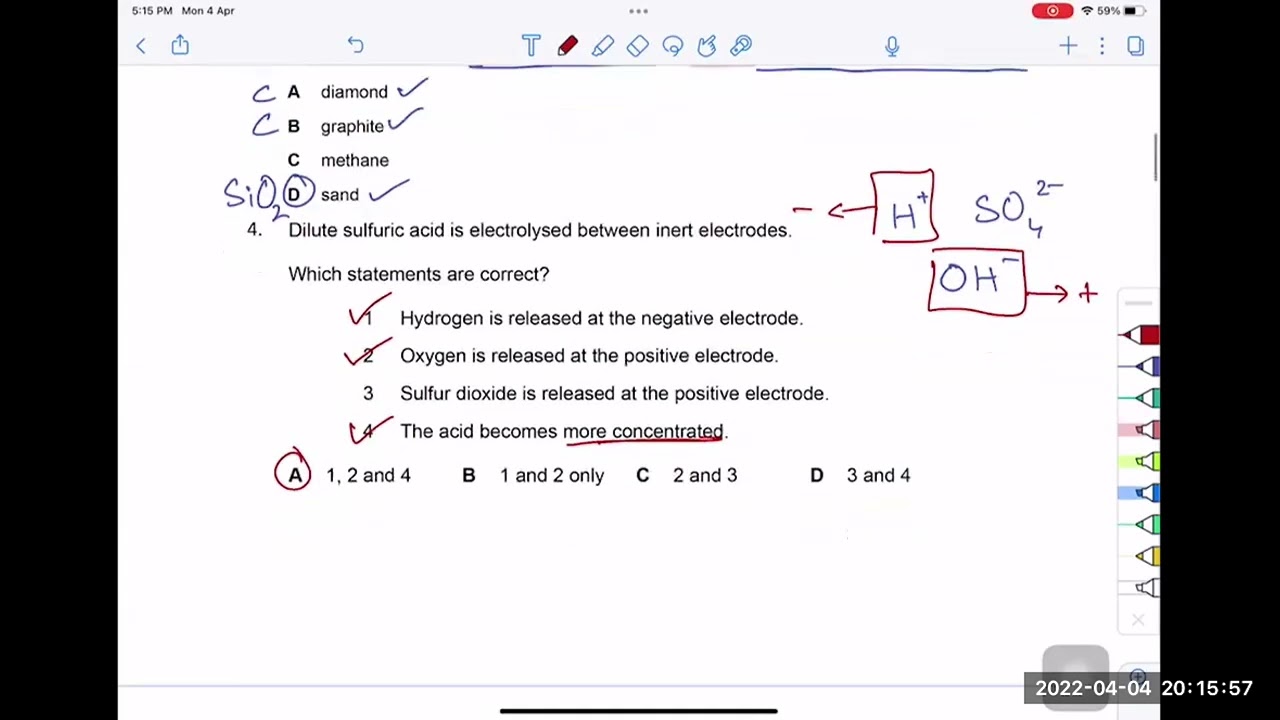 5:15 PM Mon 4 Apr
59%
C A diamond ✓
C B graphite ✓
C methane
SiO₂ D sand ✓
− ← H⁺ SO₄²⁻
4. Dilute sulfuric acid is electrolysed between inert electrodes.
OH⁻ → +
Which statements are correct?
✓ 1 Hydrogen is released at the negative electrode.
✓ 2 Oxygen is released at the positive electrode.
3 Sulfur dioxide is released at the positive electrode.
✓ 4 The acid becomes more concentrated.
A 1, 2 and 4 B 1 and 2 only C 2 and 3 D 3 and 4
2022-04-04 20:15:57